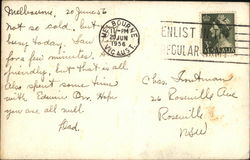 Melbourne, 20 June 56
Not so cold, but
busy today. Saw
for a few minutes.
friendly, but that is all
Also spent some time
with Edwin Hope
you are all well
Fred.
MELBOURNE
12-PM
20 JUN
1956
VIC. AUST
ENLIST
REGULAR ARMY
Chas.
26 Roseville Ave
Roseville
NSW